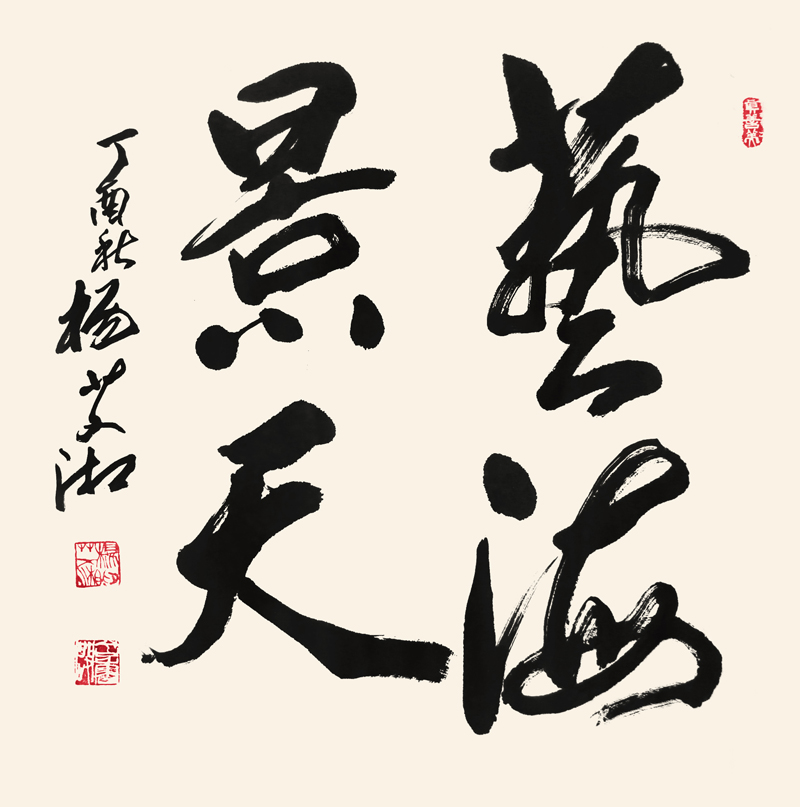 藝海
景天
丁酉秋楊艾湘